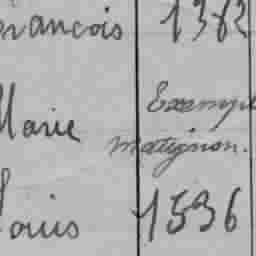 François 1382
Marie Exempt
matignon.
Louis 1536